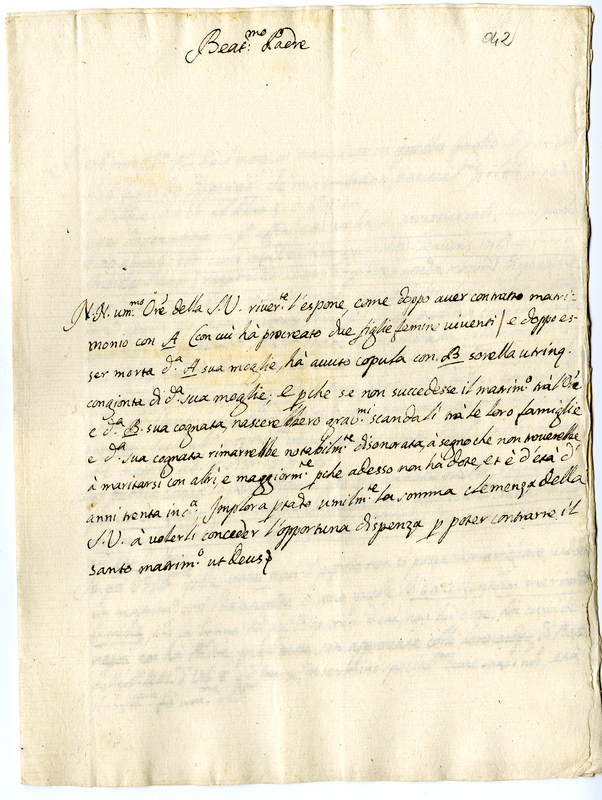 Beat.mo Padre
042
N.N. um.mo Ore della S.V. river.te l'espone come doppo aver contratto matri-
monio con A (con cui hà procreato due figlie femine viventi) e doppo es-
ser morta d.a A sua moglie, hà avuto copula con B sorella utrinq.
congionta di d.a sua moglie; E pche se non succedesse il matrim.o trà l'Ore
e d.a B. sua cognata, nascerebbero grav.mi scandali trà le loro famiglie
e d.a sua cognata rimarrebbe notabilm.te disonorata, à segno che non troverebbe
à maritarsi con altri, e maggiorm.te pche adesso non hà dote, et è d'età d'
anni trenta inc.a; Implora ptato umilm.te la somma clemenza della
S.V. à volerli conceder l'opportuna dispenza p poter contrarre il
santo matrim.o ut Deus